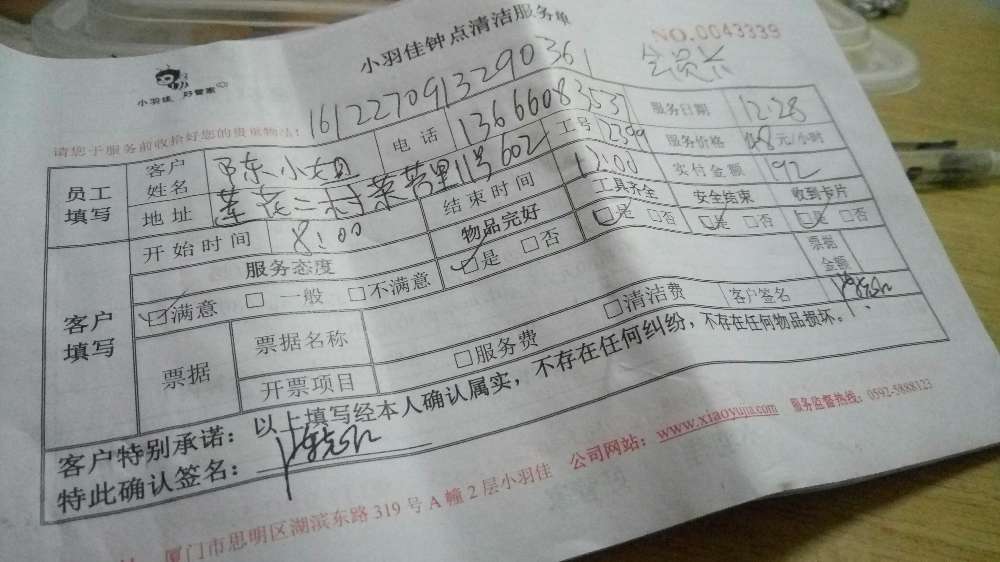 小羽佳钟点清洁服务单
NO.0043339
小羽佳 好管家
161227091329036
会员卡
请您于服务前收拾好您的贵重物品!
员工填写
客户姓名 陈小姐 电话 13666083537 服务日期 12.28
地址 莲花二村菜苔里11号602 工号 2399 服务价格 48元/小时
开始时间 8:00 结束时间 12:00 实付金额 192
客户填写
服务态度 物品完好 工具齐全 安全结束 收到卡片
☑满意 □一般 □不满意 ☑是 □否 ☑是 □否 ☑是 □否 ☑是 □否
票据 票据名称 □服务费 □清洁费 票据金额
开票项目 客户签名
客户特别承诺:以上填写经本人确认属实,不存在任何纠纷,不存在任何物品损坏。
特此确认签名:
厦门市思明区湖滨东路319号A幢2层小羽佳 公司网站:www.xiaoyujia.com 服务监督热线:0592-5888123